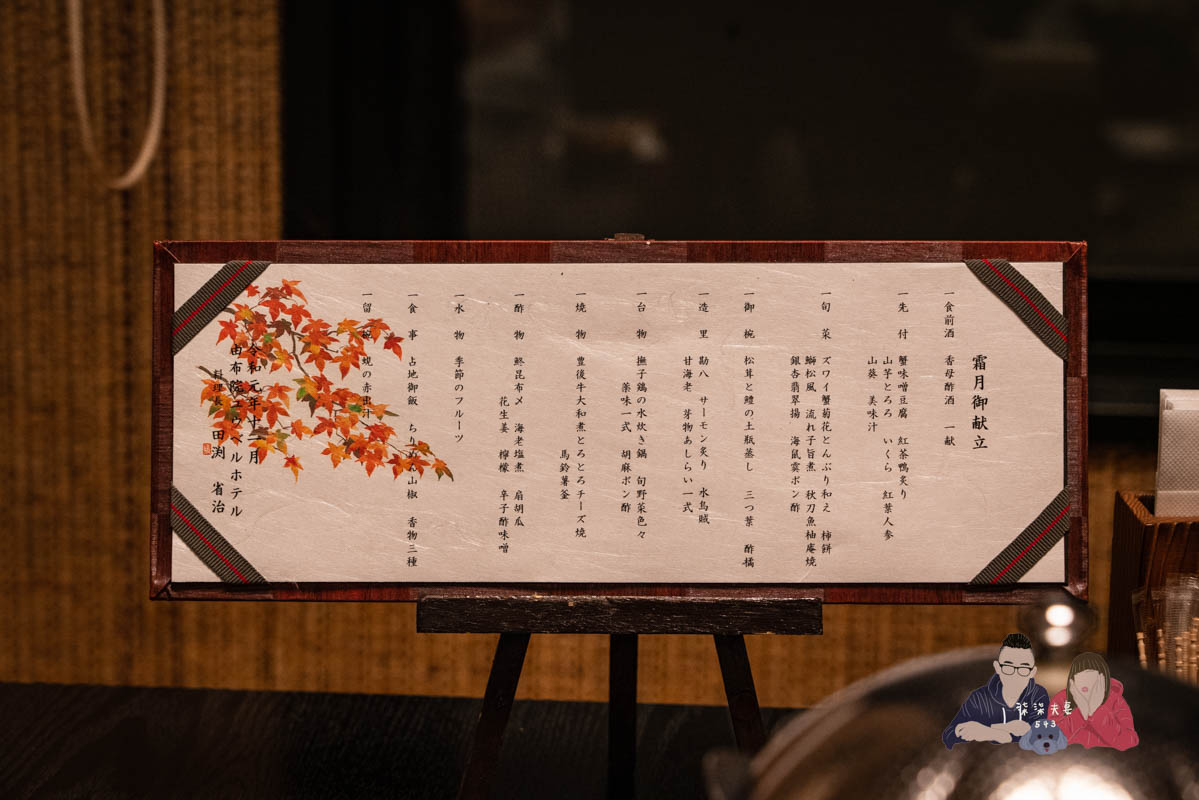 霜月御献立
一食前酒 香母酢酒 一献
一先付 蟹味噌豆腐 紅茶鴨炙り
山芋とろろ いくら 紅葉人参
山葵 美味汁
一旬菜 ズワイ蟹菊花とんぶり和え 柿餅
鰤松風 流れ子旨煮 秋刀魚柚庵焼
銀杏翡翠揚 海鼠霙ポン酢
一御椀 松茸と鱧の土瓶蒸し 三つ葉 酢橘
一造里 勘八 サーモン炙り 水烏賊
甘海老 芽物あしらい一式
一台物 撫子鶏の水炊き鍋 旬野菜色々
薬味一式 胡麻ポン酢
一焼物 豊後牛大和煮とろとろチーズ焼
馬鈴薯釜
一酢物 鯵昆布〆 海老塩煮 扇胡瓜
花生姜 檸檬 辛子酢味噌
一水物 季節のフルーツ
一食事 占地御飯 ちりめん山椒 香物三種
一留椀 蜆の赤出汁
令和元年十一月
由布院 ホテル
料理長 田渕 省治
柒柒夫妻
543